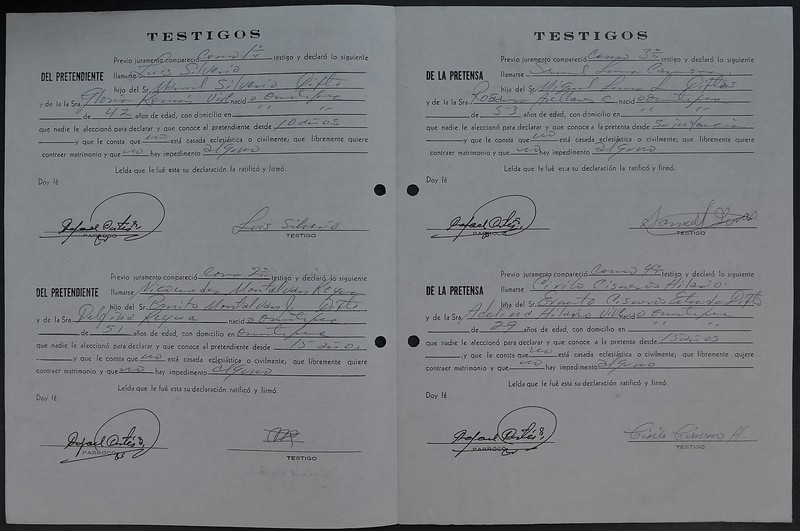 TESTIGOS
Previo juramento compareció Como 1º testigo y declaró lo siguiente
DEL PRETENDIENTE llamarse Luis Silverio
hijo del Sr. Silverio
y de la Sra. Gloria Román nació
de 42 años de edad, con domicilio en " "
que nadie le aleccionó para declarar y que conoce al pretendiente desde 10 años
y que le consta que no está casada eclesiástica o civilmente; que libremente quiere
contraer matrimonio y que no hay impedimento alguno
Leída que le fué esta su declaración la ratificó y firmó.
Doy fé
Rafael
PARROCO
Luis Silverio
TESTIGO
Previo juramento compareció Como 2º testigo y declaró lo siguiente
DEL PRETENDIENTE llamarse Nicomedes Montalvan Reyna
hijo del Sr. Benito Montalvan
y de la Sra. Reyna nació
de 51 años de edad, con domicilio en
que nadie le aleccionó para declarar y que conoce al pretendiente desde 15 años
y que le consta que no está casada eclesiástica o civilmente; que libremente quiere
contraer matrimonio y que no hay impedimento alguno
Leída que le fué esta su declaración ratificó y firmó.
Doy fé
Rafael
PARROCO
TESTIGO
TESTIGOS
Previo juramento compareció Como 3º testigo y declaró lo siguiente
DE LA PRETENSA llamarse
hijo del Sr. Miguel
y de la Sra. nació
de 53 años de edad, con domicilio en " "
que nadie le aleccionó para declarar y que conoce a la pretensa desde su infancia
y que le consta que no está casada eclesiástica o civilmente; que libremente quiere
contraer matrimonio y que no hay impedimento alguno
Leída que le fué esta su declaración la ratificó y firmó.
Doy fé
Rafael
PARROCO
TESTIGO
Previo juramento compareció Como 4º testigo y declaró lo siguiente
DE LA PRETENSA llamarse Cirilo Cisneros Hilario
hijo del Sr. Cisneros
y de la Sra. Hilario nació
de 29 años de edad, con domicilio en " "
que nadie le aleccionó para declarar y que conoce a la pretensa desde 15 años
y que le consta que no está casada eclesiástica o civilmente; que libremente quiere
contraer matrimonio y que no hay impedimento alguno
Leída que le fué esta su declaración ratificó y firmó.
Doy fé
Rafael
PARROCO
Cirilo Cisneros H.
TESTIGO